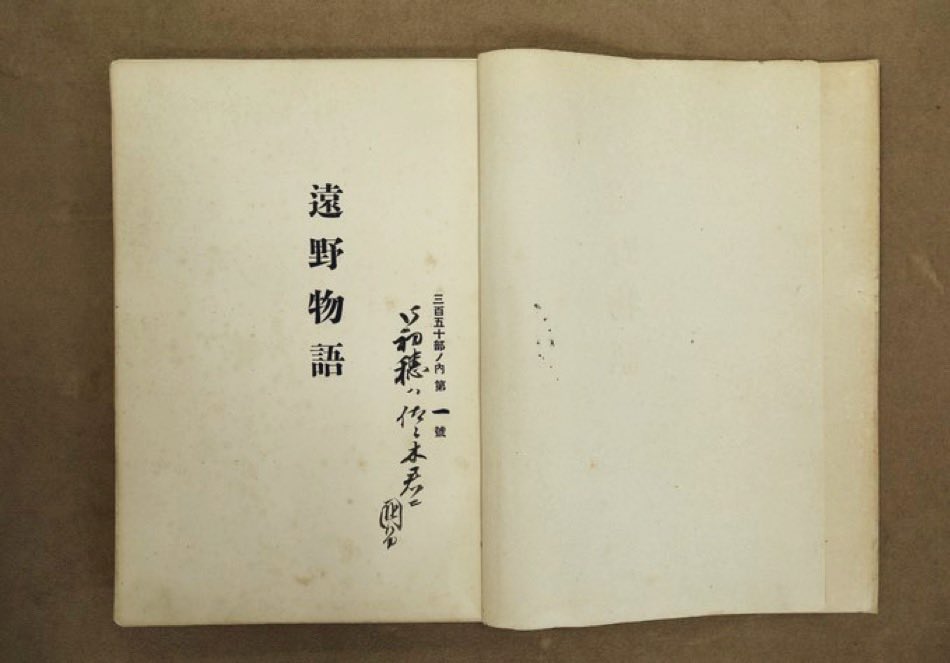 三百五十部ノ内 第一號
御初穂ハ佐々木君ニ
國男
遠野物語